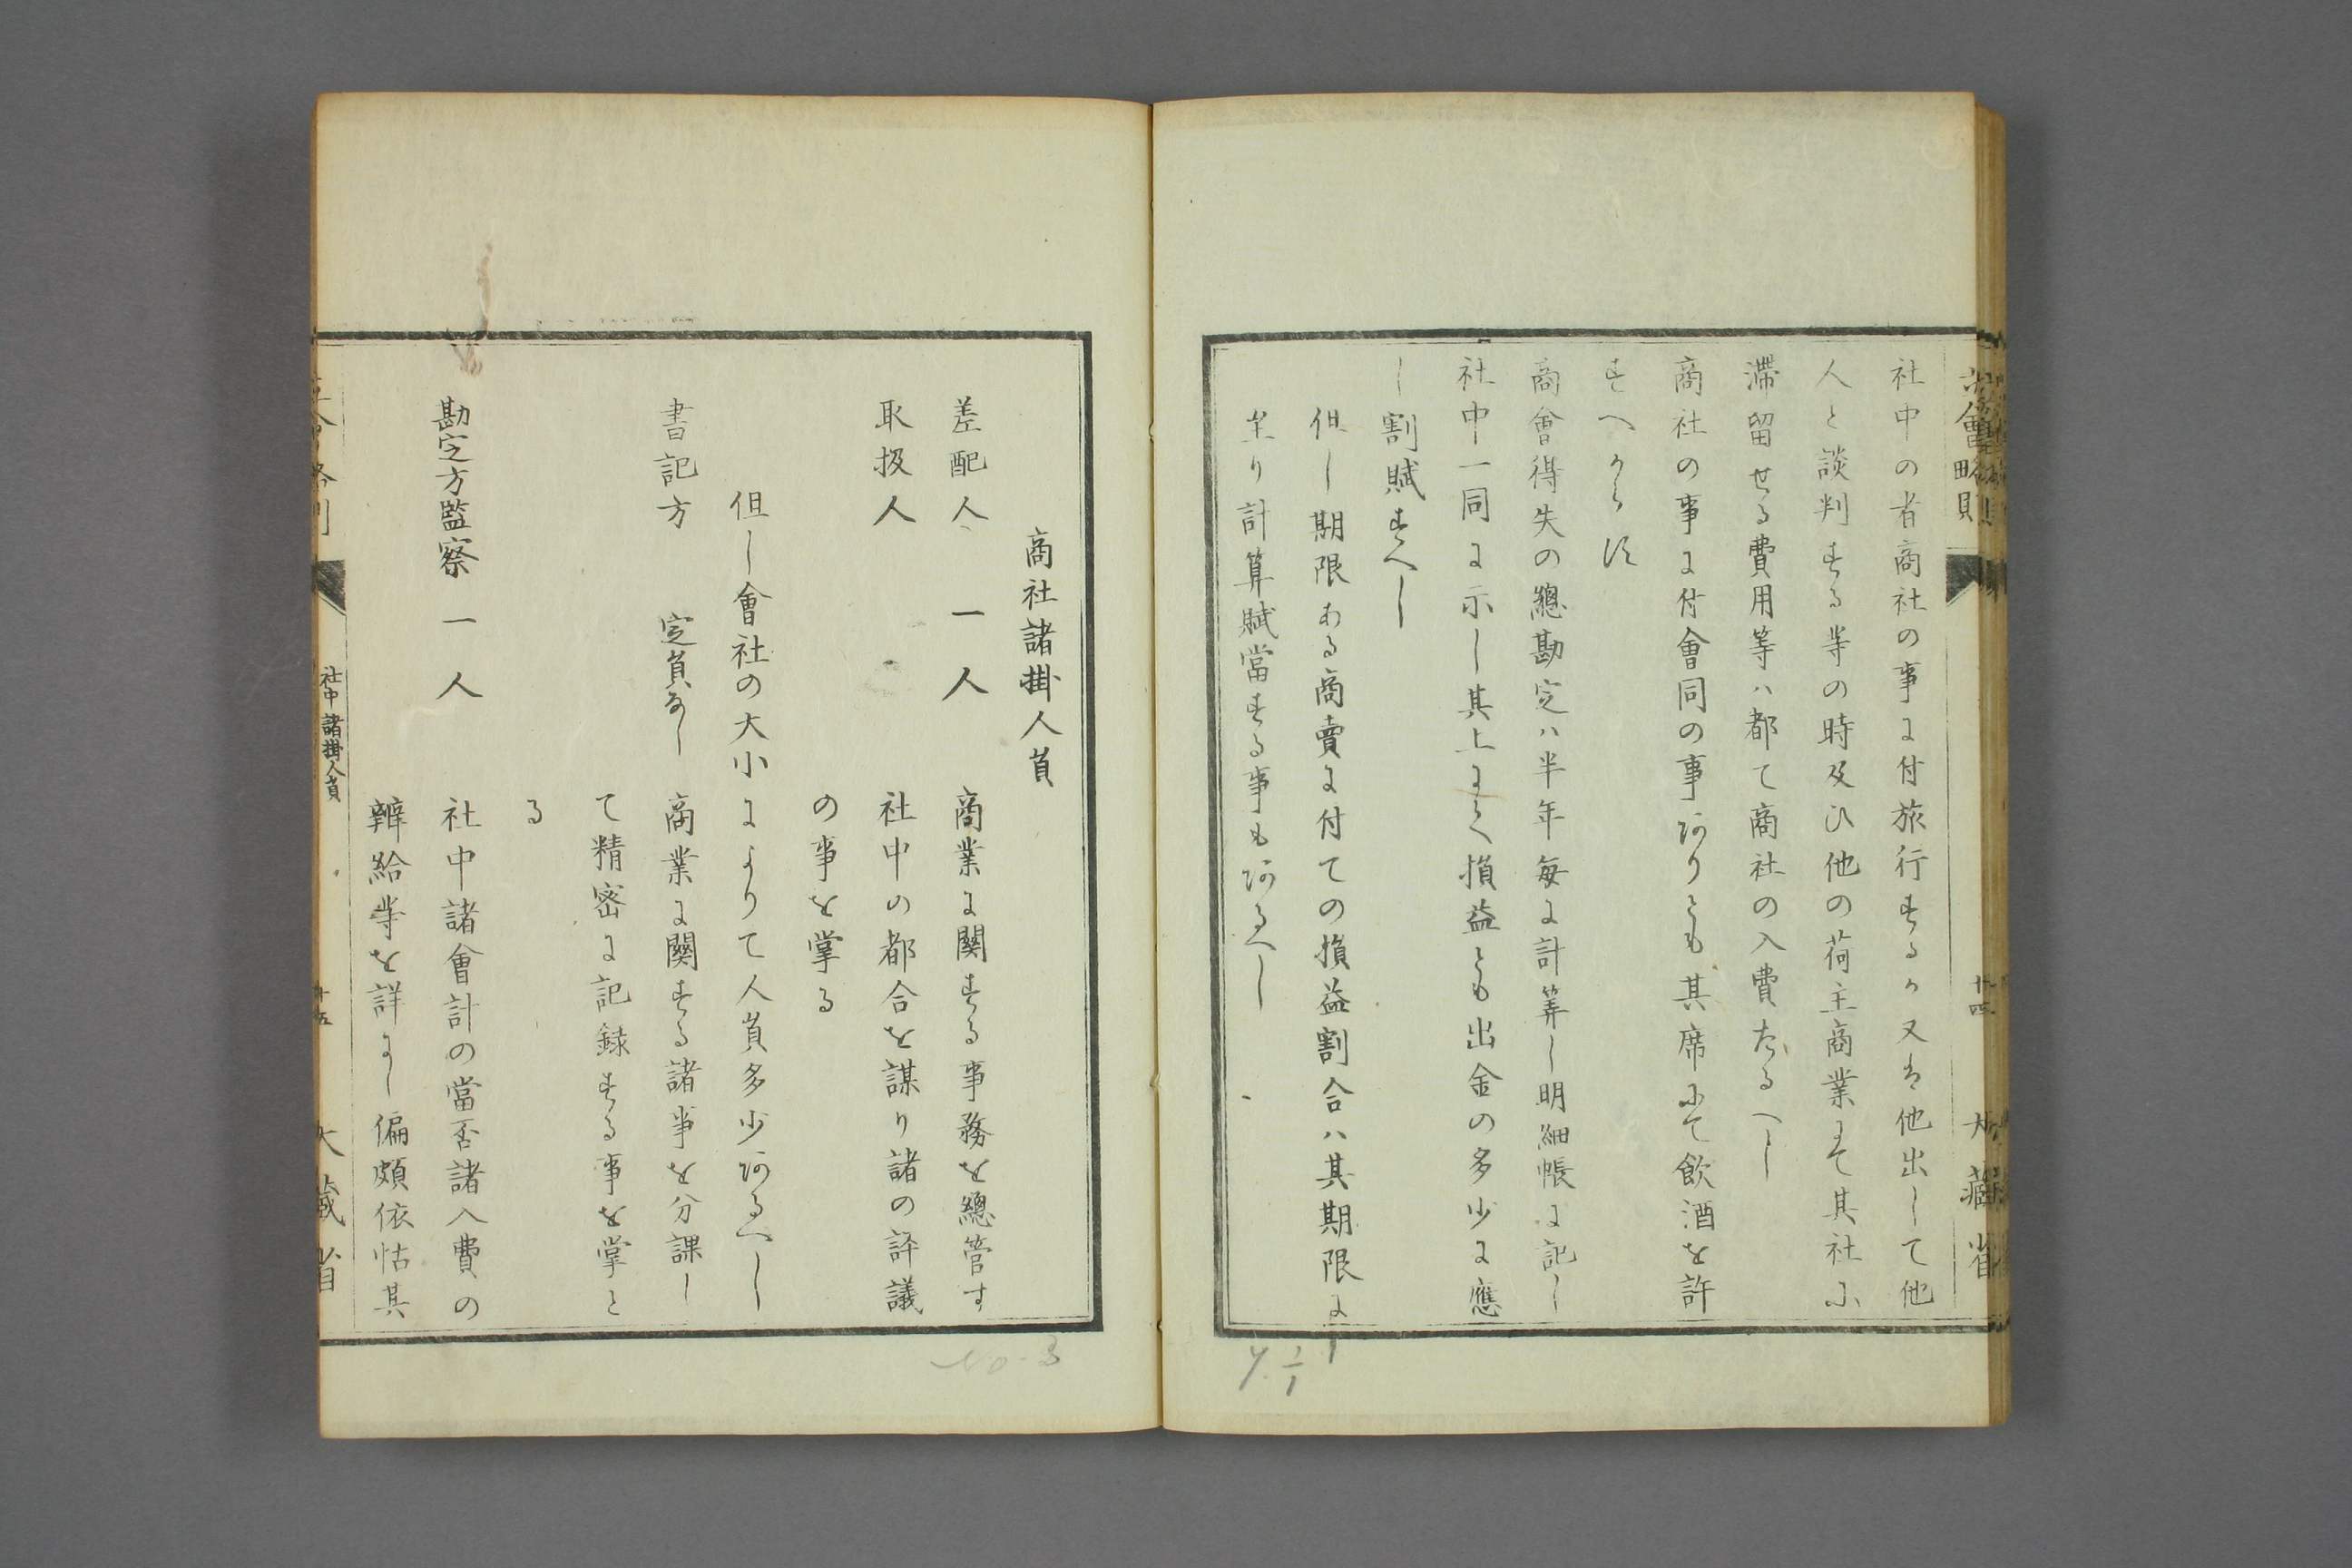 社中の者商社の事に付旅行するか又は他出して他
人と談判する等の時及ひ他の荷主商業にて其社に
滯留せる費用等ハ都て商社の入費たるへし
商社の事に付會同の事ありとも其席にて飲酒を許
すへからす
商會得失の總勘定ハ半年毎に計算し明細帳に記し
社中一同に示し其上にて損益とも出金の多少に應
し割賦すへし
但し期限ある商賣に付ての損益割合ハ其期限に
至り計算賦當する事もあるへし
會略則
十四
大藏省
商社諸掛人員
差配人 一人 商業に關する事務を總管す
取扱人 社中の都合を謀り諸の評議
の事を掌る
但し會社の大小によりて人員多少あるへし
書記方 定員なし 商業に關する諸事を分課し
て精密に記録する事を掌と
る
勘定方監察 一人 社中諸會計の當否諸入費の
辨給等を詳にし偏頗依怙其
社中諸掛人員
十五
大藏省
No-3